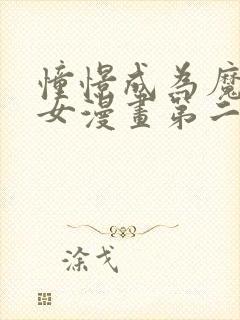 憧憬成為魔
女漫畫第二
涂戈